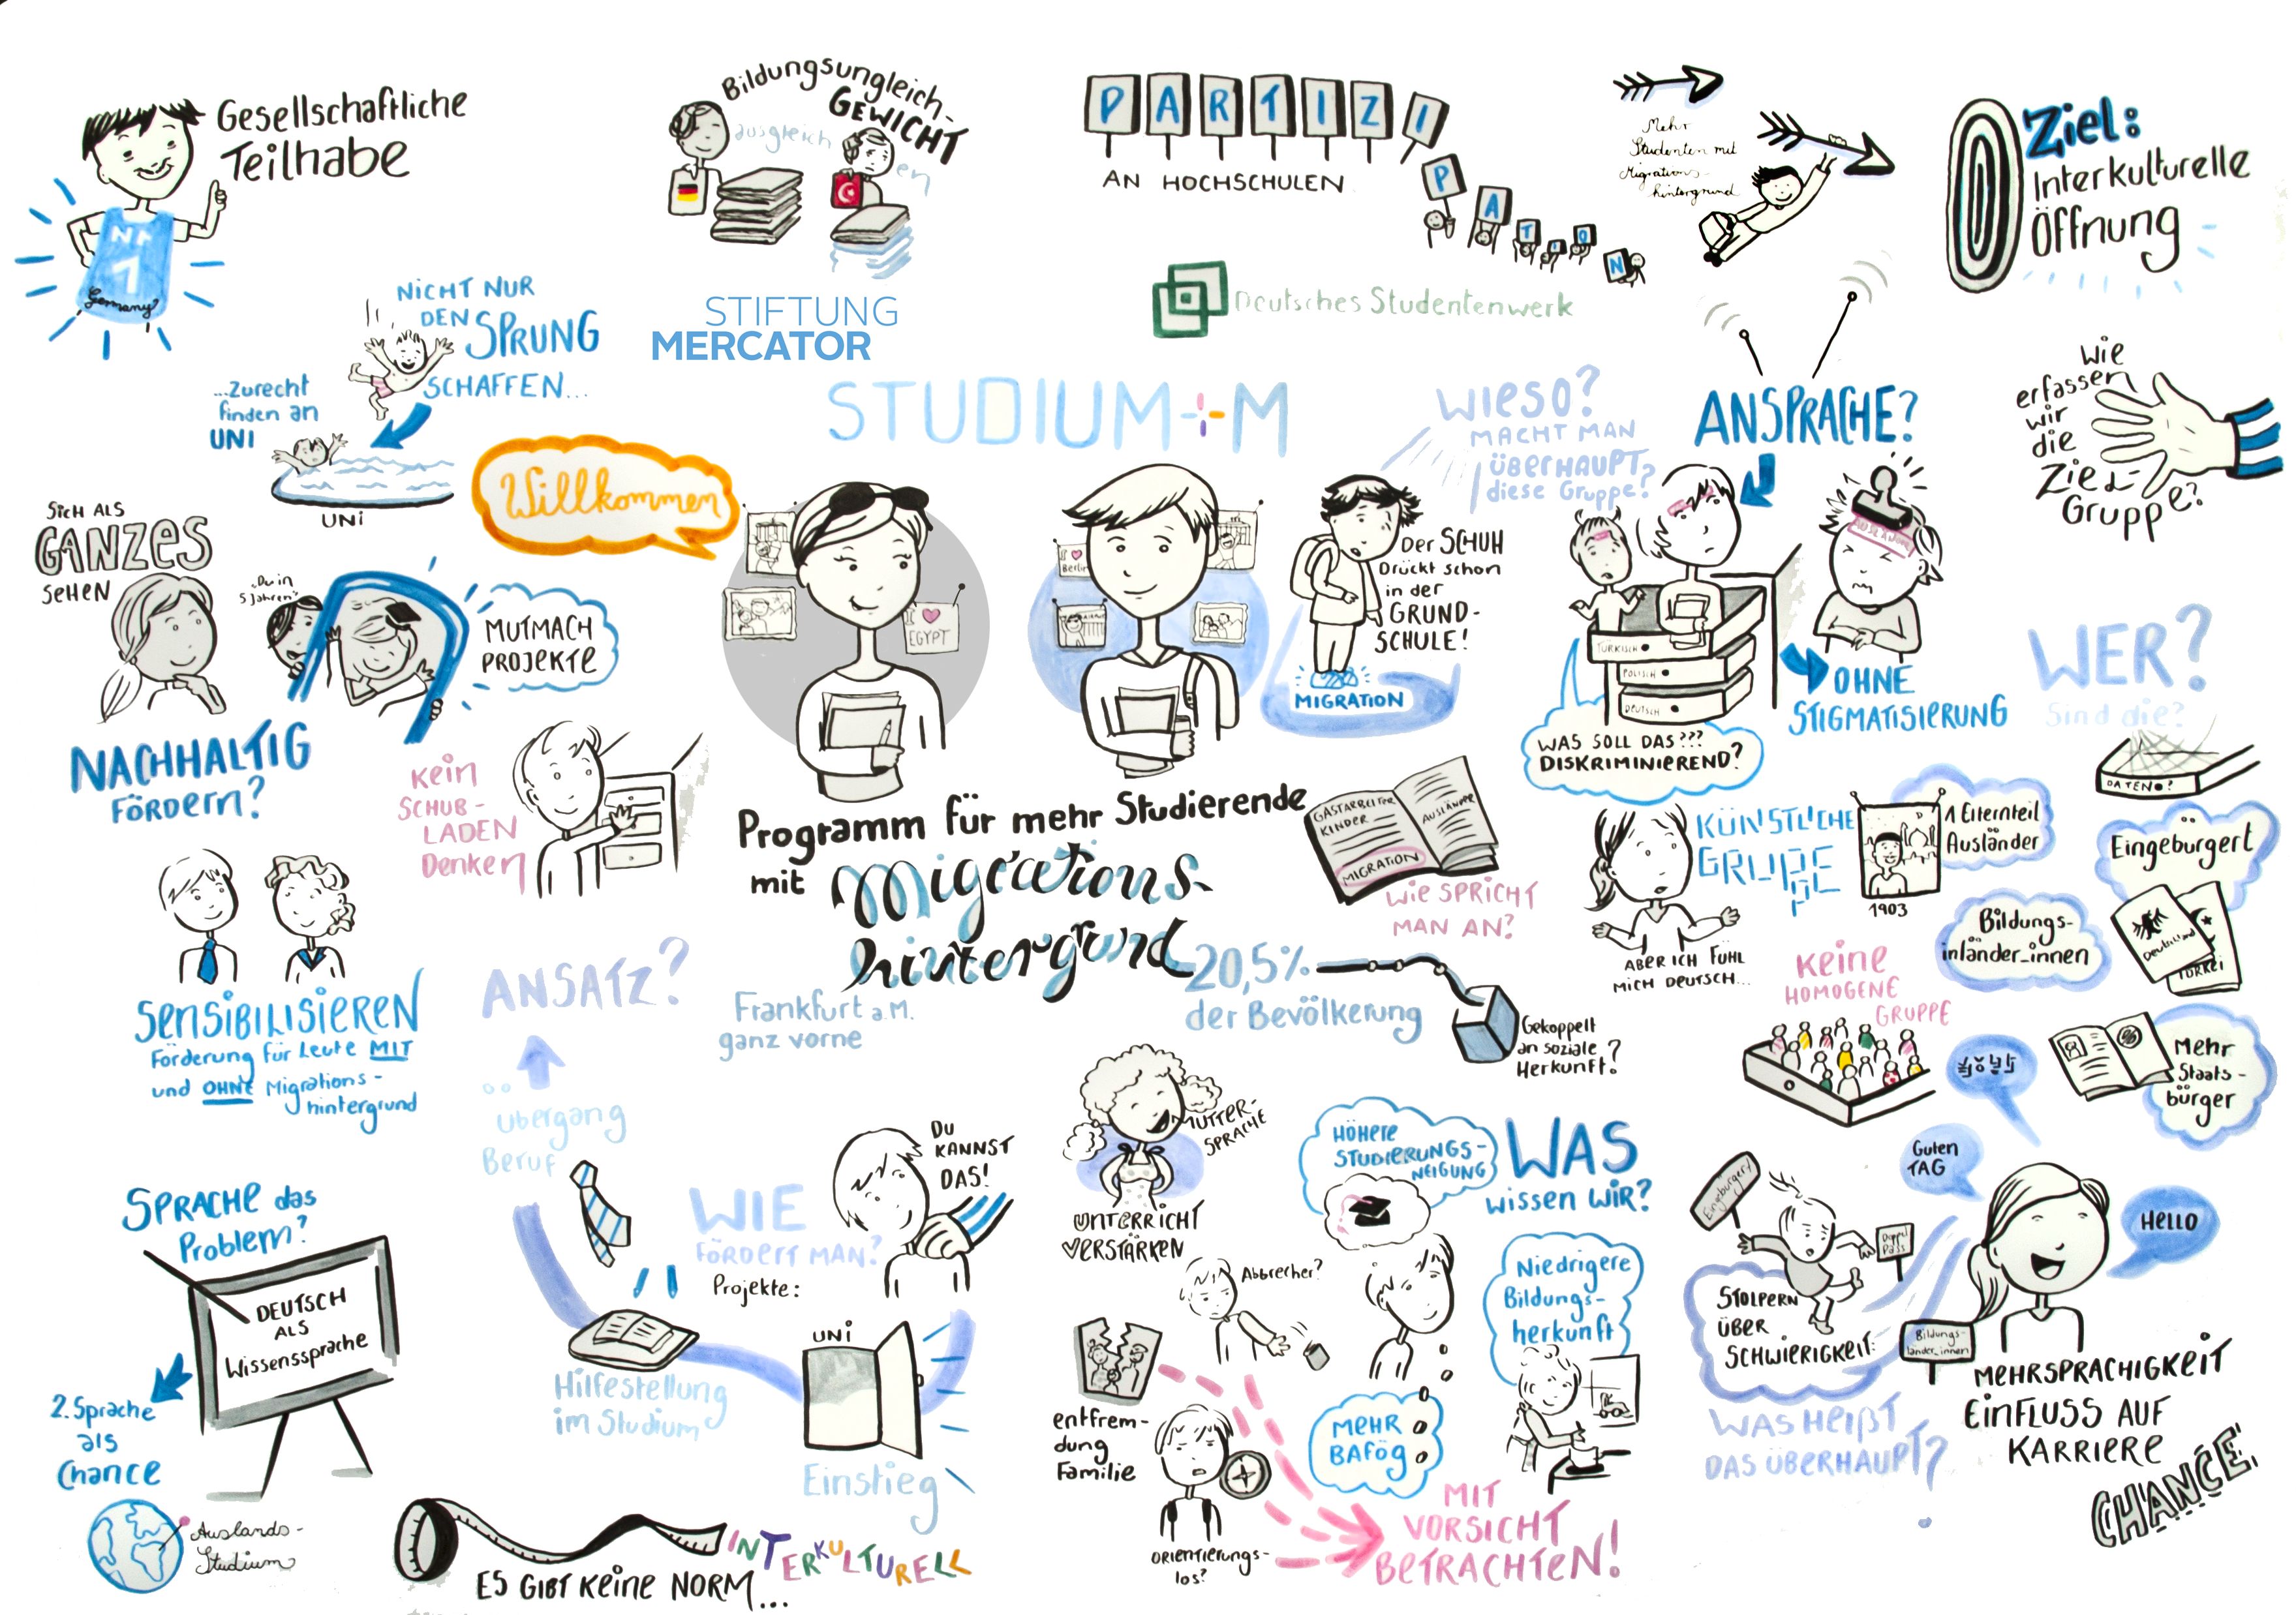 Gesellschaftliche
Teilhabe
Nr
1
Germany?
Bildungsungleich-
GEWICHT
ausgleich
en
PARTIZIPATION
AN HOCHSCHULEN
Mehr
Studenten mit
Migrations-
hintergrund
Ziel:
Interkulturelle
Öffnung
NICHT NUR
DEN SPRUNG
SCHAFFEN...
...Zurecht
finden an
UNI
UNI
STIFTUNG
MERCATOR
Deutsches Studentenwerk
STUDIUM+M
Willkommen
WIESO?
MACHT MAN
ÜBERHAUPT?
diese Gruppe?
ANSPRACHE?
Wie
erfassen
wir
die
Ziel-
Gruppe?
SICH ALS
GANZES
SEHEN
"Du in
5 Jahren"
MUTMACH
PROJEKTE
I ♥
EGYPT
I ♥
Berlin
Der SCHUH
Drückt schon
in der
GRUND-
SCHULE!
MIGRATION
TÜRKISCH
POLISCH
DEUTSCH
AUSLÄNDER
OHNE
STIGMATISIERUNG
WAS SOLL DAS???
DISKRIMINIEREND?
WER?
Sind die?
DATEN?
NACHHALTIG
FÖRDERN?
Kein
SCHUB-
LADEN
Denken
Programm für mehr Studierende
mit Migrations-
hintergrund
GASTARBEITER
KINDER
AUSLÄNDER
MIGRATION
Wie SPRICHT
MAN AN?
KÜNSTLICHE
GRUPPE
ABER ICH FÜHL
MICH DEUTSCH...
1903
1 Elternteil
Ausländer
Eingebürgert
Bildungs-
inländer_innen
Deutschland
TÜRKEI
Keine
HOMOGENE
GRUPPE
Mehr
Staats-
bürger
SENSIBILISIEREN
Förderung für Leute MIT
und OHNE Migrations-
hintergrund
ANSATZ?
Frankfurt a.M.
ganz vorne
20,5%
der Bevölkerung
Gekoppelt
an soziale
Herkunft?
Übergang
Beruf
DU
KANNST
DAS!
WIE
FÖRDERT MAN?
Projekte:
UNI
Hilfestellung
im Studium
Einstieg
MUTTER-
SPRACHE
UNTERRICHT
VERSTÄRKEN
HÖHERE
STUDIERUNGS-
NEIGUNG
WAS
wissen WIR?
Abbrecher?
Niedrigere
Bildungs-
herkunft
MEHR
BAFÖG
entfrem-
dung
Familie
ORIENTIERUNGS-
los?
MIT
VORSICHT
BETRACHTEN!
Guten
TAG
HELLO
Eingebürgert
Doppel
Pass
STOLPERN
ÜBER
SCHWIERIGKEIT:
Bildungs-
länder_innen
WAS HEIßT
DAS ÜBERHAUPT?
MEHRSPRACHIGKEIT
EINFLUSS AUF
KARRIERE
CHANCE
SPRACHE das
Problem?
DEUTSCH
ALS
Wissenssprache
2. Sprache
als
Chance
Auslands-
Studium
INTERKULTURELL
ES GIBT KEINE NORM...